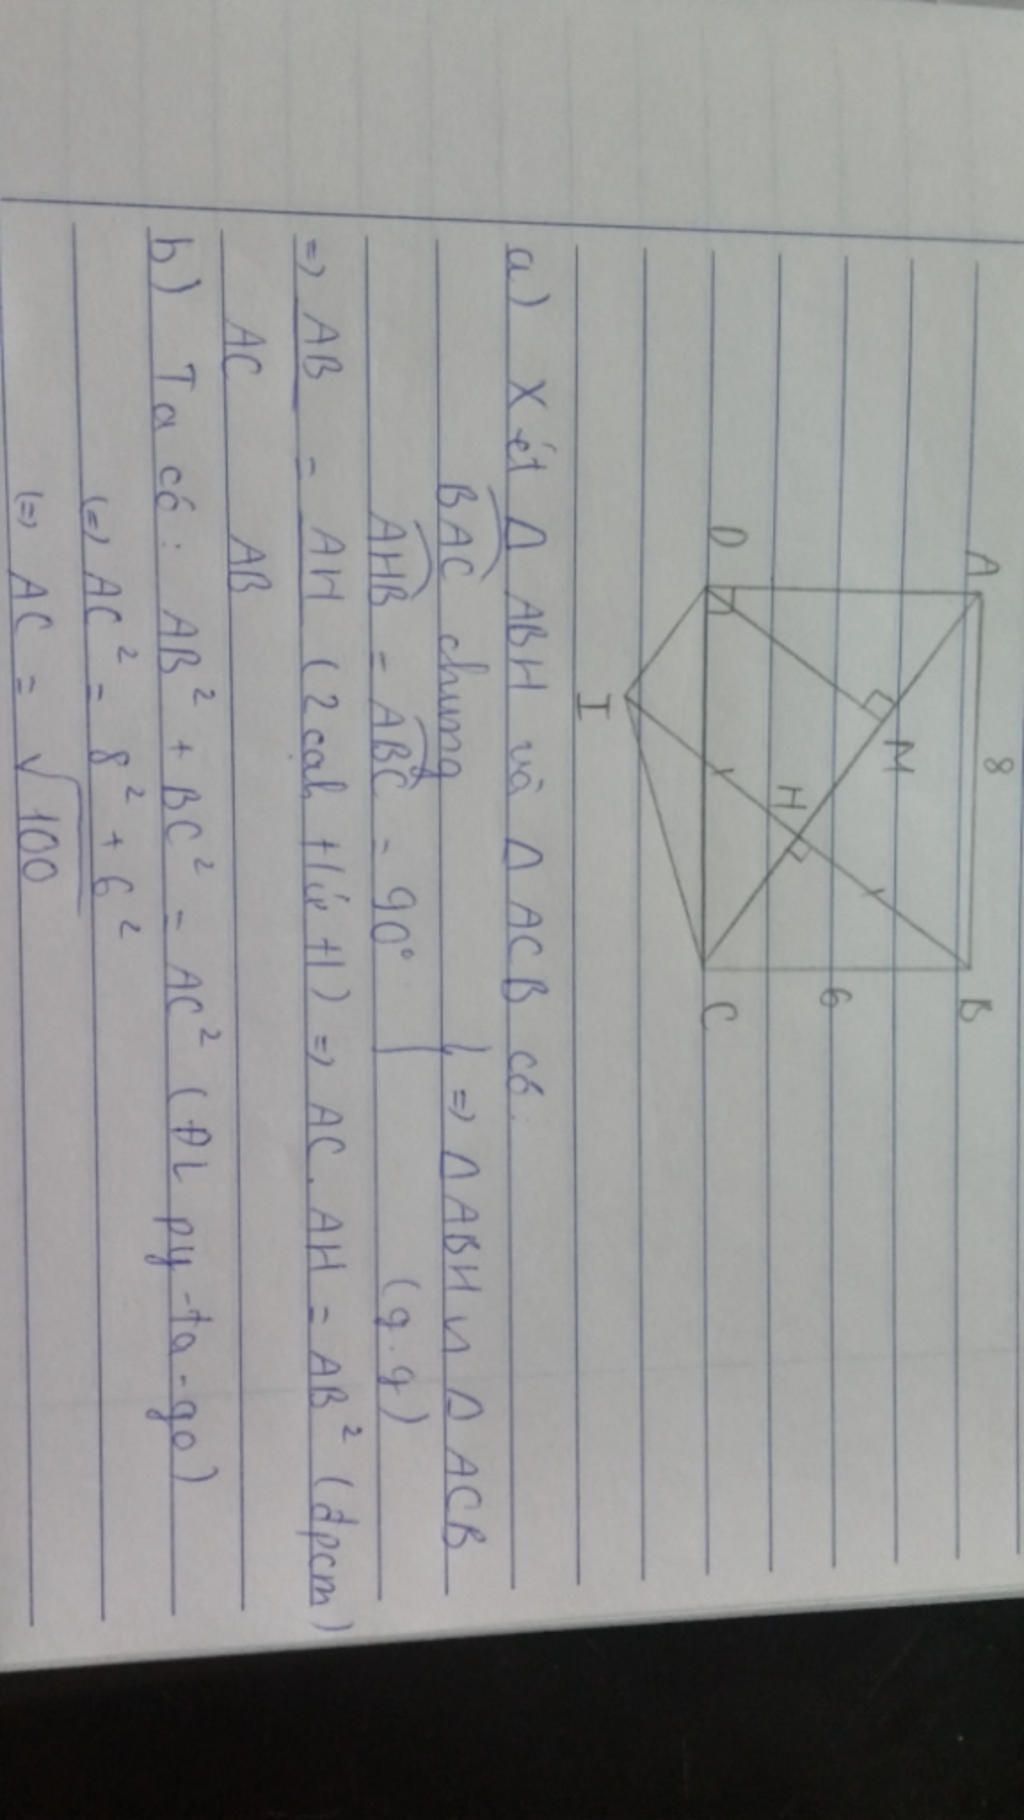 A 8 B
M
6
H
D C
I
a) Xét Δ ABH và Δ ACB có:
BAC chung } => Δ ABH ∽ Δ ACB
AHB = ABC = 90° (g.g)
=> AB/AC = AH/AB (2 cạh tlứ tl) => AC. AH = AB² (đpcm)
b) Ta có: AB² + BC² = AC² (ĐL py-ta-go)
(=> AC² = 8² + 6²
(=> AC = √100